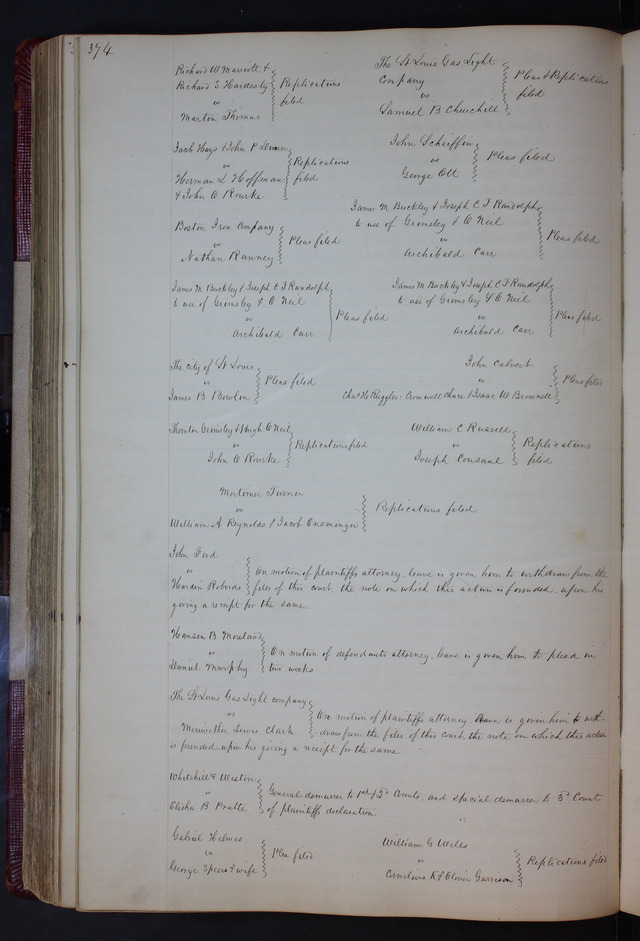 374
Richard W Marriott &
Richard S Hardesty
vs
Martin Thomas
Replications
filed
The St Louis Gas Light
Company
vs
Samuel B Churchill
Pleas & Replications
filed
Jacob Hays & John P
vs
Herman L Hoffman
& John O Rourke
Replications
filed
John Scheiffin
vs
George Ott
Pleas filed
Boston Iron Company
vs
Nathan Ranney
Pleas filed
James M Buckley & Joseph C F Randolph
to use of Grimsley & O Neil
vs
Archibald Carr
Pleas filed
James M Buckley & Joseph C F Randolph
to use of Grimsley & O Neil
vs
Archibald Carr
Pleas filed
James M Buckley & Joseph C F Randolph
to use of Grimsley & O Neil
vs
Archibald Carr
Pleas filed
The city of St Louis
vs
James B Bowlin
Pleas filed
John Calvert
vs
Chas H Ruggles Cromwell Chase & Isaac W Brownell
Pleas filed
Thornton Grimsley & Hugh O Neil
vs
John O Rourke
Replications filed
William C Russell
vs
Joseph Consaul
Replications
filed
Mortimer Turner
vs
William A Reynolds & Jacob Ensminger
Replications filed
John Ford
vs
Hardin Robards
On motion of plaintiffs attorney leave is given him to withdraw from the
files of this court the note on which this action is founded, upon his
giving a receipt for the same
Hanson B Moreland
vs
Daniel Murphy
On motion of defendants attorney, leave is given him to plead in
two weeks
The St Louis Gas Light company
vs
Meriwether Lewis Clark
On motion of plaintiffs attorney, leave is given him to with-
draw from the files of this court, the note on which this action
is founded upon his giving a receipt for the same
Whitehill & Weston
vs
Elisha B
General demurrer to 1st & 2d Counts, and special demurrer to 3d Count
of plaintiffs declaration
Gabriel Helmes
vs
George Speers & wife
Plea filed
William G Wells
vs
Cornelius K & Oliver Garrison
Replications filed